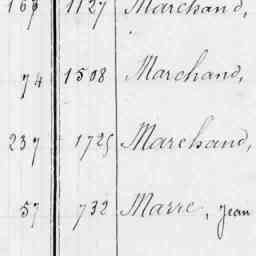 169 1127 Marchand,
74 1508 Marchand,
237 1725 Marchand,
57 732 Marre, Jean